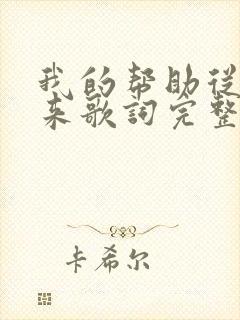 我的帮助從
来歌詞完整
卡希尔